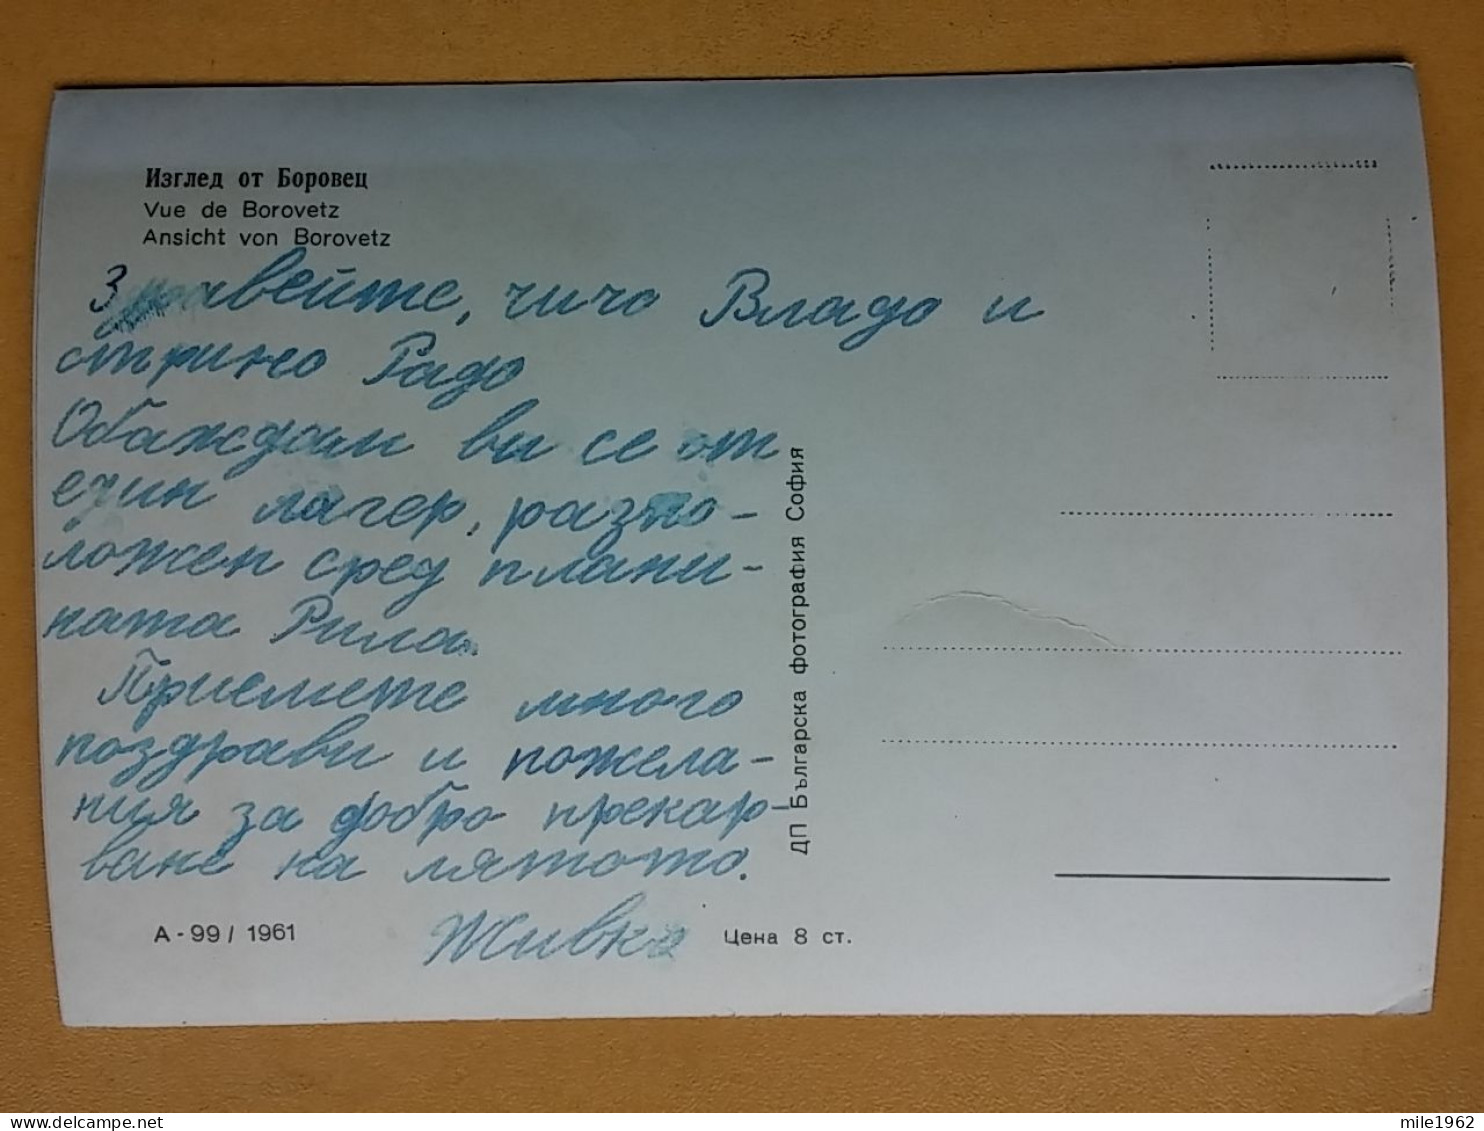 Изглед от Боровец
Vue de Borovetz
Ansicht von Borovetz
Здравейте, чичо Владо и
стрино Радо
Обаждам ви се от
един лагер, разпо-
ложен сред плани-
ната Рила.
Приемете много
поздрави и пожела-
ния за добро прекар-
ване на лятото.
Живко
А-99/1961
Цена 8 ст.
ДП Българска фотография София
mile1962